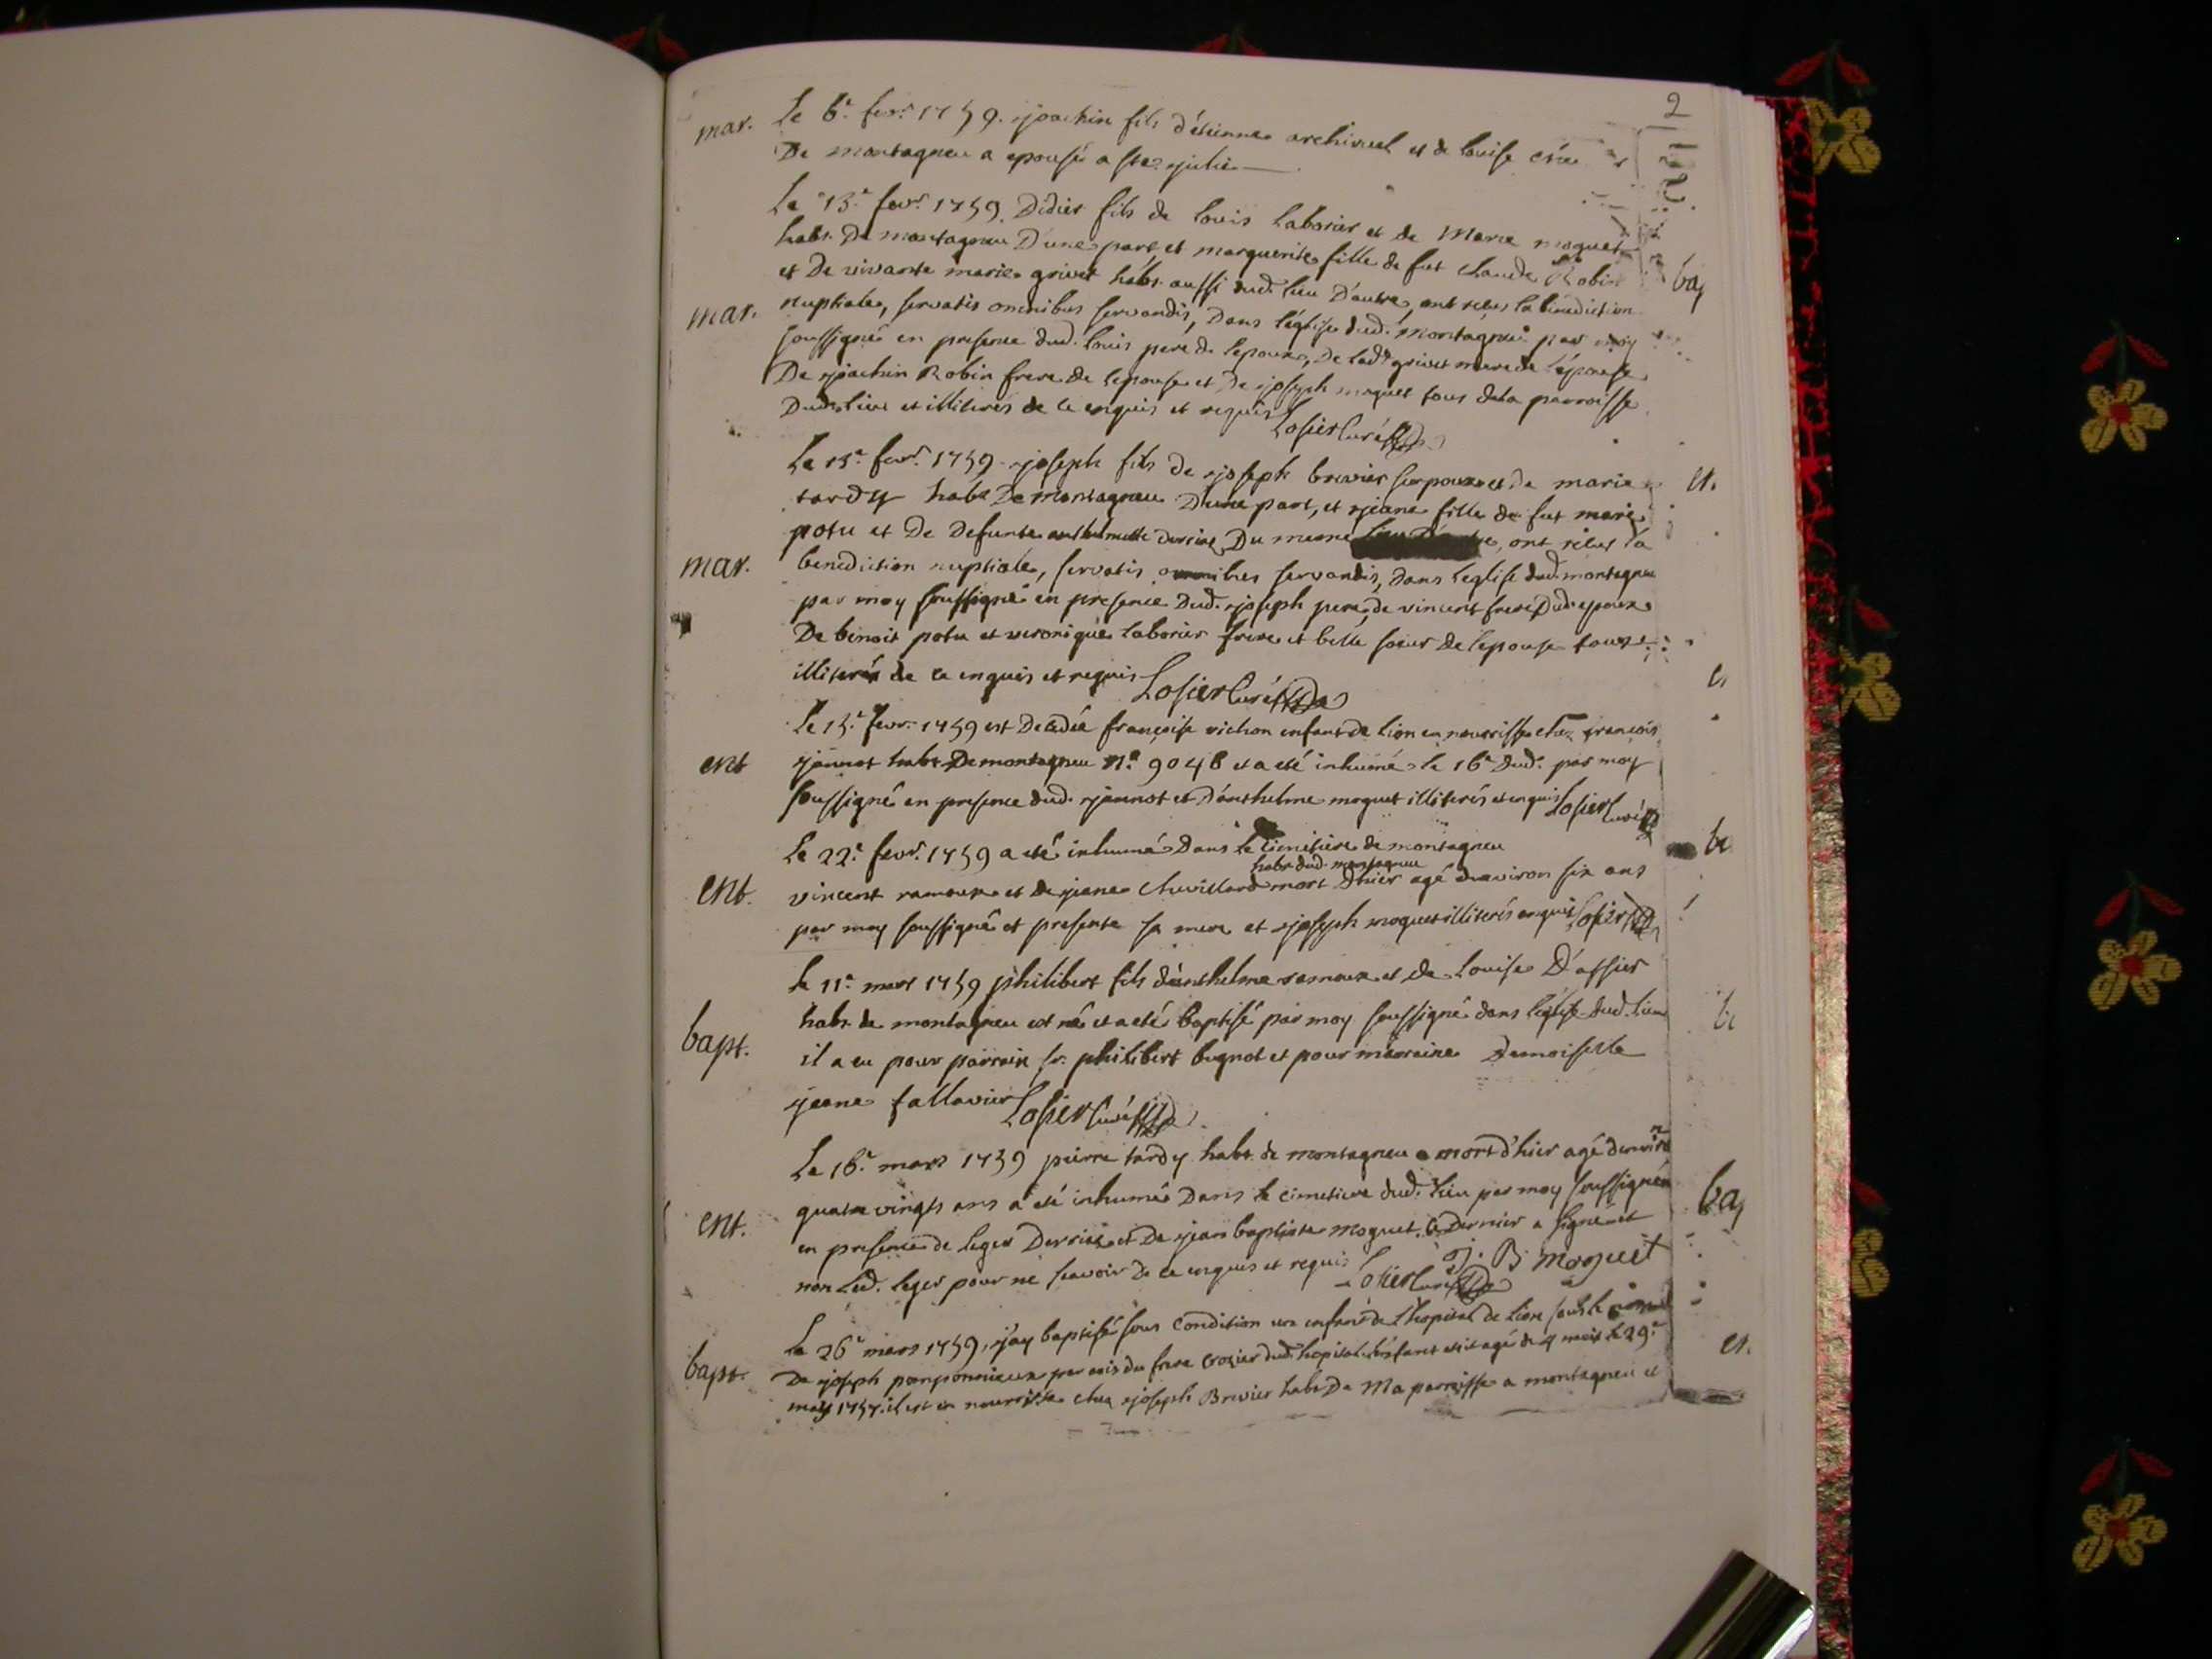 2
mar. Le 6e fevr. 1759. joachin fils d'étienne archiruel et de louise
De montagneu a epousé a ste julie
Le 13e fevr. 1759. Didier fils de louis laborier et de Marie moquet
habt. De montagneu D'une part, et marguerite fille de fut claude Robin
et De vivante marie grivet habt. aussi dud. lieu D'autre, ont reçus la bénédiction
mar. nuptiale, servatis omnibus servandis, Dans l'église dud. montagneu par moy
soussigné en presence dud. louis pere de l'epoux, De lade grivet mere de l'épouse
De joachin Robin frere de l'epouse et De joseph moquet tous de la parroisse
Dud. lieu et illiterés de ce enquis et requis Losier Curé
Le 15e fevr. 1759. joseph fils de joseph brevier serpoux et de marie
tardy habt De montagneu D'une part, et jeane fille de fut marie
potu et De Defunte anthelmette derriaz Du meme, ont reçus la
mar. benediction nuptiale, servatis omnibus servandis, dans l'eglise dud. montagneu
par moy soussigné en presence Dud. joseph pere, de vincent frere Dud. epoux
De benoit potu et veronique laborier frere et belle soeur de l'epouse tous
illiterés de ce enquis et requis Losier Curé
Le 15e fevr. 1759 est Decedée françoise vichon enfant de lion en nourrisse chez françois
ent jannot habt De montagneu n.o 9048 et a eté inhumé le 16e dud. par moy
soussigné en presence dud. jannot et D'anthelme moquet illiterés et enquis Losier Curé
Le 22e fevr. 1759 a eté inhumé Dans le cimetiere de montagneu
habt dud. montagneu
ent. vincent ramoux et de jeane Chevillard mort D'hier agé d'environ six ans
par moy soussigné et presente sa mere et joseph moquet illiterés enquis Losier
le 11e mars 1759 philibert fils d'anthelme ramoux et de louise D'assier
habt. de montagneu est né et a eté baptisé par moy soussigné dans l'église dud. lieu
bapt. il a eu pour parrain sr. philibert bugnot et pour marraine Demoiselle
jeane fallavier Losier Curé
Le 16e mars 1759 pierre tardy habt. de montagneu mort d'hier agé d'environ
quatre vingts ans a eté inhumé Dans le cimetiere dud. lieu par moy soussigné
ent. en presence de leger Derriaz et De jean baptiste moquet, ce Dernier a signé et
non led. leger pour ne scavoir de ce enquis et requis J. B. moquet
Losier Curé
Le 26e mars 1759, j'ay baptisé sous condition un enfant de l'hopital de lion sous le nom
bapt. De joseph pomponnieux par avis du frere crozier dud. hopital. l'enfant etoit agé de 4 mois le 29e
may 1757. il est en nourrisse chez joseph Brevier habt De Ma parroisse a montagneu et